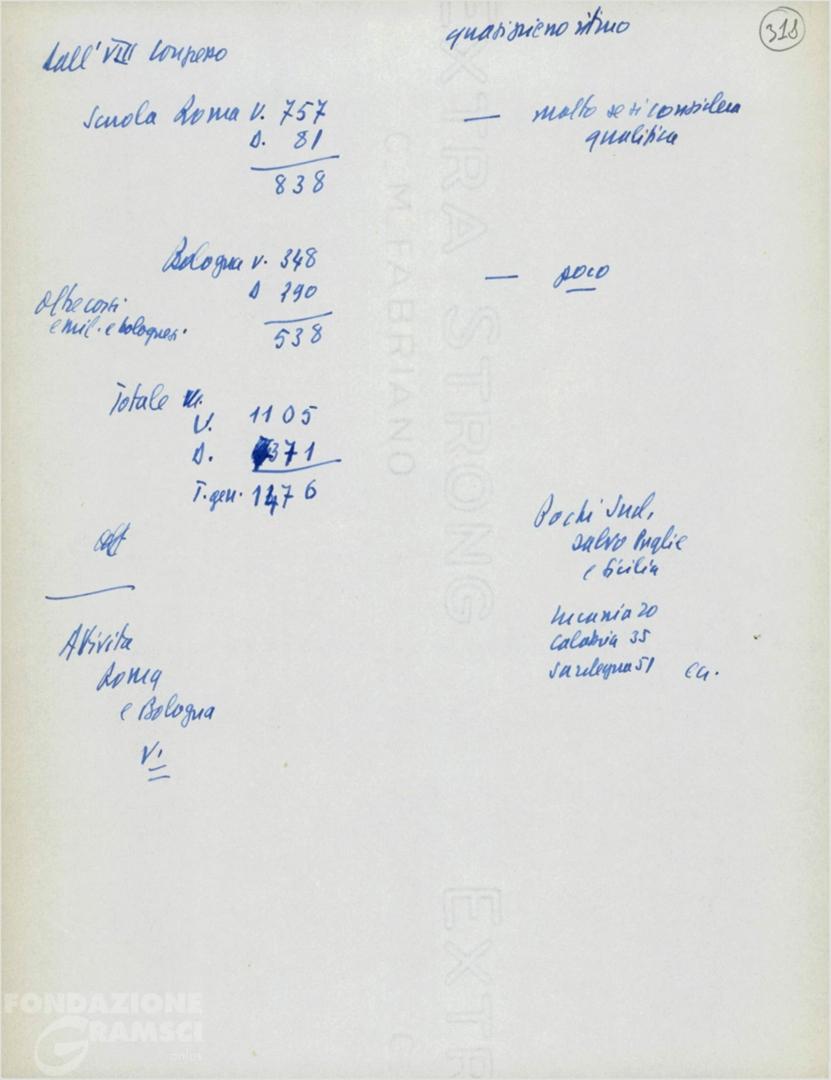 quasi pieno ritmo
318
dall'VIII Congresso
Scuola Roma V. 757
D. 81
838
— molto se si considera
qualifica
Bologna V. 348
D 290
538
— poco
oltre corsi
emil. e bolognesi.
Totale
V. 1105
D. 371
T. gen. 1476
Pochi Sud,
salvo Puglie
e Sicilia
Lucania 20
Calabria 35
Sardegna 51 ecc.
Attività
Roma
e Bologna
V.
EXTRA STRONG
C. M. FABRIANO
EXTR
FONDAZIONE
GRAMSCI
onlus